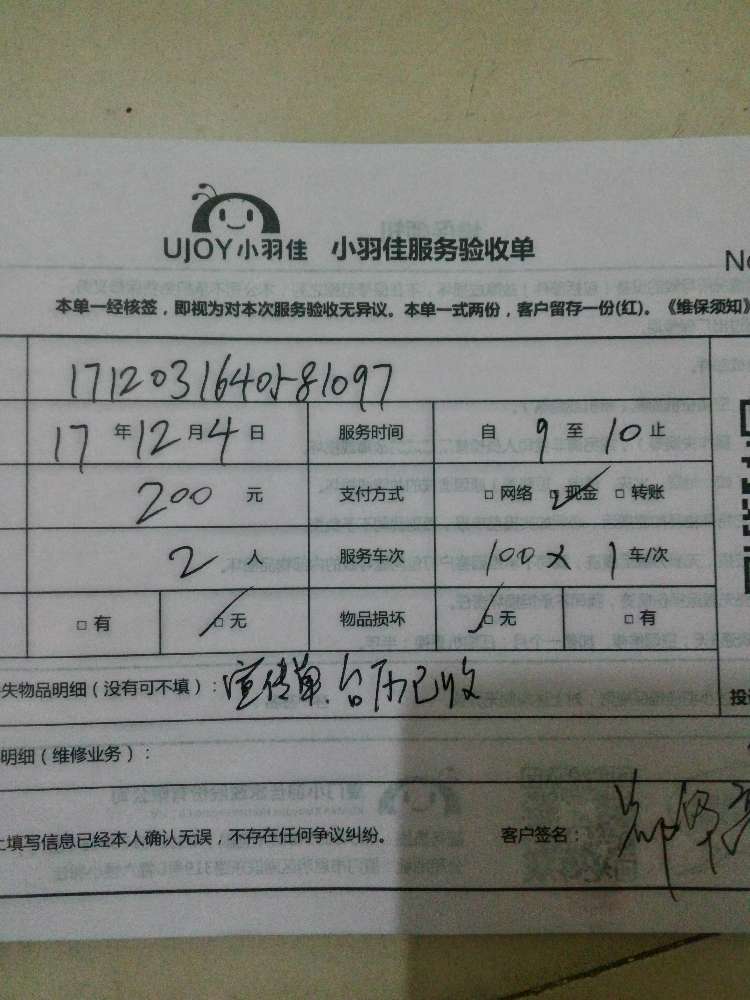 UJOY小羽佳 小羽佳服务验收单
No
本单一经核签，即视为对本次服务验收无异议。本单一式两份，客户留存一份(红)。《维保须知》
1712031640581097
17年12月4日 服务时间 自9至10止
200元 支付方式 □网络 □现金 □转账
2人 服务车次 100×1车/次
□有 □无 物品损坏 □无 □有
失物品明细（没有可不填）：宣传单、台历已收
投
明细（维修业务）：
上填写信息已经本人确认无误，不存在任何争议纠纷。 客户签名：